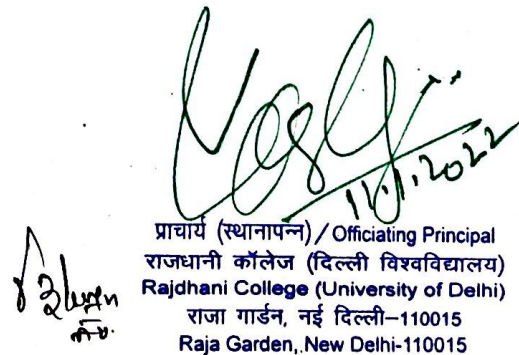 12.1.2022
प्राचार्य (स्थानापन्न) / Officiating Principal
राजधानी कॉलेज (दिल्ली विश्वविद्यालय)
Rajdhani College (University of Delhi)
राजा गार्डन, नई दिल्ली–110015
Raja Garden, New Delhi-110015